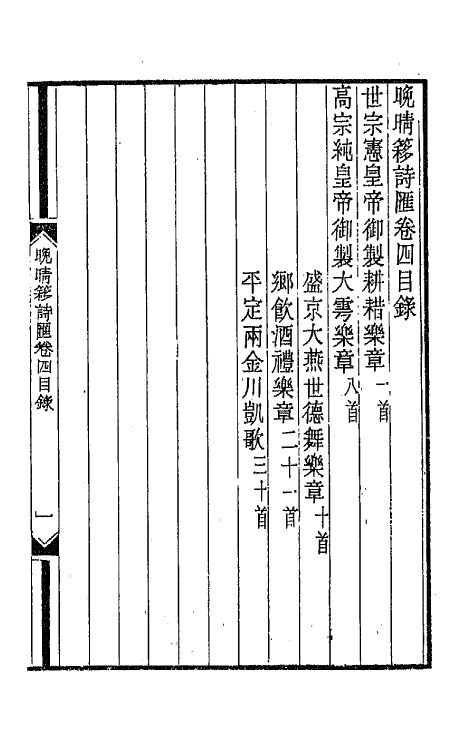 晚晴簃詩匯卷四目錄
世宗憲皇帝御製耕耤樂章一首
高宗純皇帝御製大雩樂章八首
盛京大燕世德舞樂章十首
鄉飲酒禮樂章二十一首
平定兩金川凱歌三十首
晚晴簃詩匯卷四目錄
一